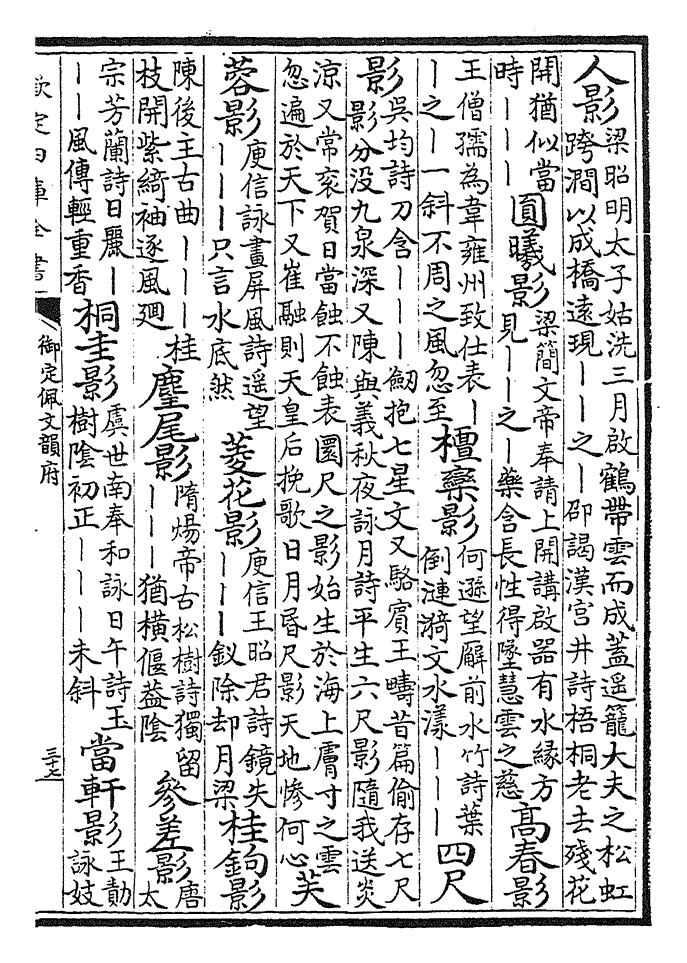 人影
梁昭明太子姑洗三月啟鶴帶雲而成蓋遥籠大夫之松虹
跨澗以成橋遠現丨丨之丨邵謁漢宫井詩梧桐老去殘花
開猶似當
時丨丨丨
圓曦影
梁簡文帝奉請上開講啟器有水緣方
見丨丨之丨藥含長性得墜慧雲之慈
高舂影
王僧孺為韋雍州致仕表丨
丨之丨一斜不周之風忽至
檀欒影
何遜望廨前水竹詩葉
倒漣漪文水漾丨丨丨
四尺
影
吳均詩刀含丨丨丨劒抱七星文又駱賓王疇昔篇偷存七尺
影分没九泉深又陳與義秋夜詠月詩平生六尺影隨我送炎
涼又常衮賀日當蝕不蝕表圜尺之影始生於海上膚寸之雲
忽遍於天下又崔融則天皇后挽歌日月昏尺影天地慘何心
芙
蓉影
庾信詠畫屏風詩遥望
丨丨丨只言水底然
菱花影
庾信王昭君詩鏡失
丨丨丨釵除却月梁
桂鉤影
陳後主古曲丨丨丨桂
枝開紫綺袖逐風廻
麈尾影
隋煬帝古松樹詩獨留
丨丨丨猶横偃葢陰
參差影
唐
太
宗芳蘭詩日麗丨
丨丨風傳輕重香
桐圭影
虞世南奉和詠日午詩玉
樹陰初正丨丨丨未斜
當軒影
王勣
詠妓
欽定四庫全書
御定佩文韻府
三十七